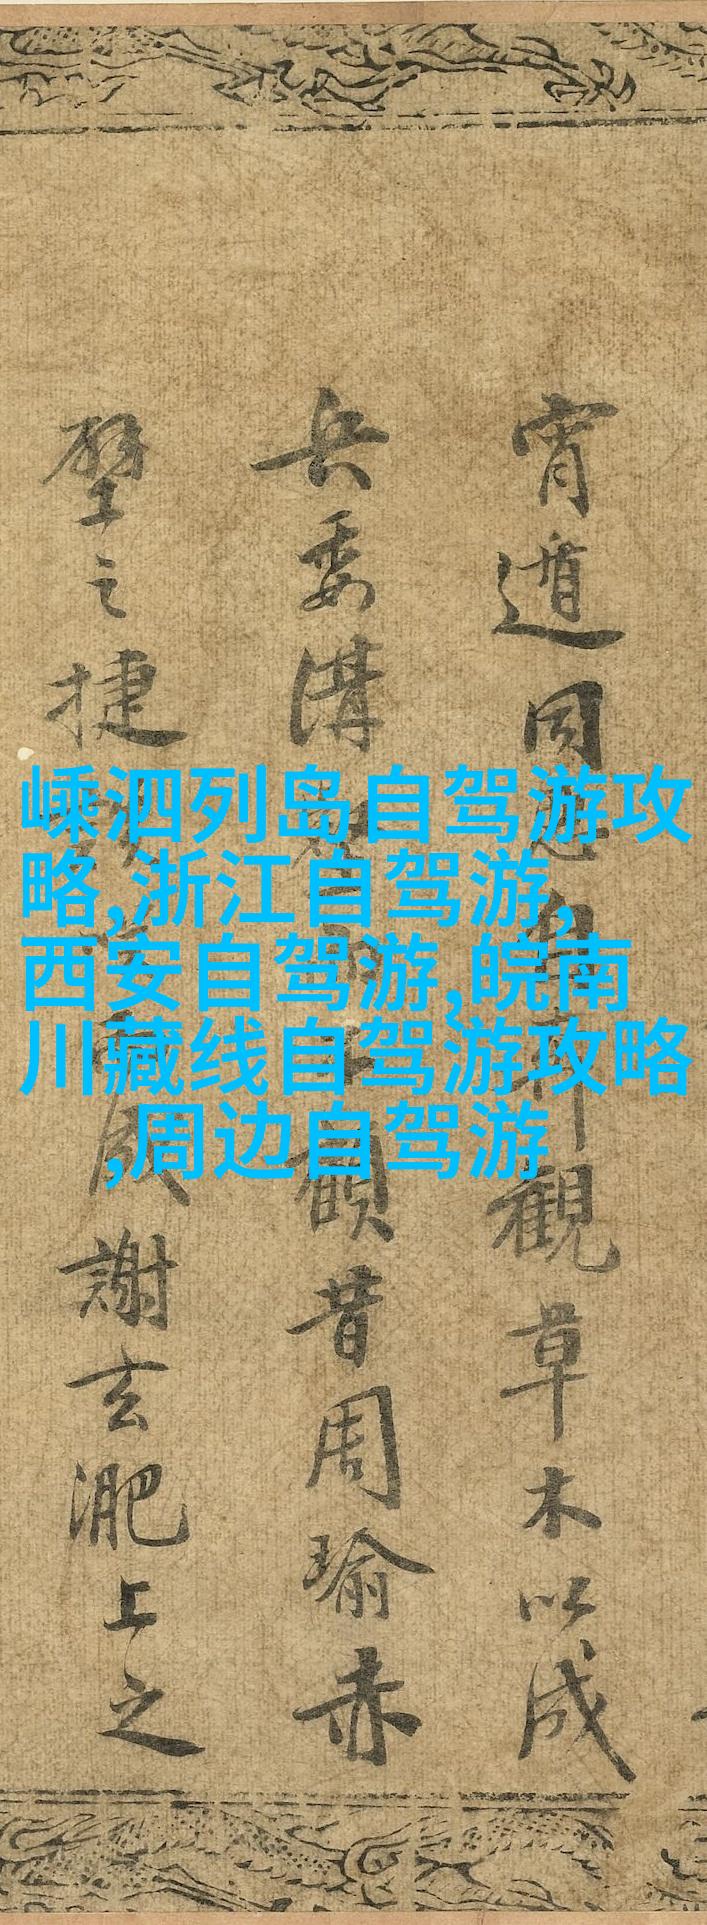 宵遁同觀草木以成
兵委溝顧昔周瑜赤
壁之捷成謝玄淝上之
嵊泗列岛自驾游攻
略,浙江自驾游,
西安自驾游,皖南
川藏线自驾游攻略
,周边自驾游